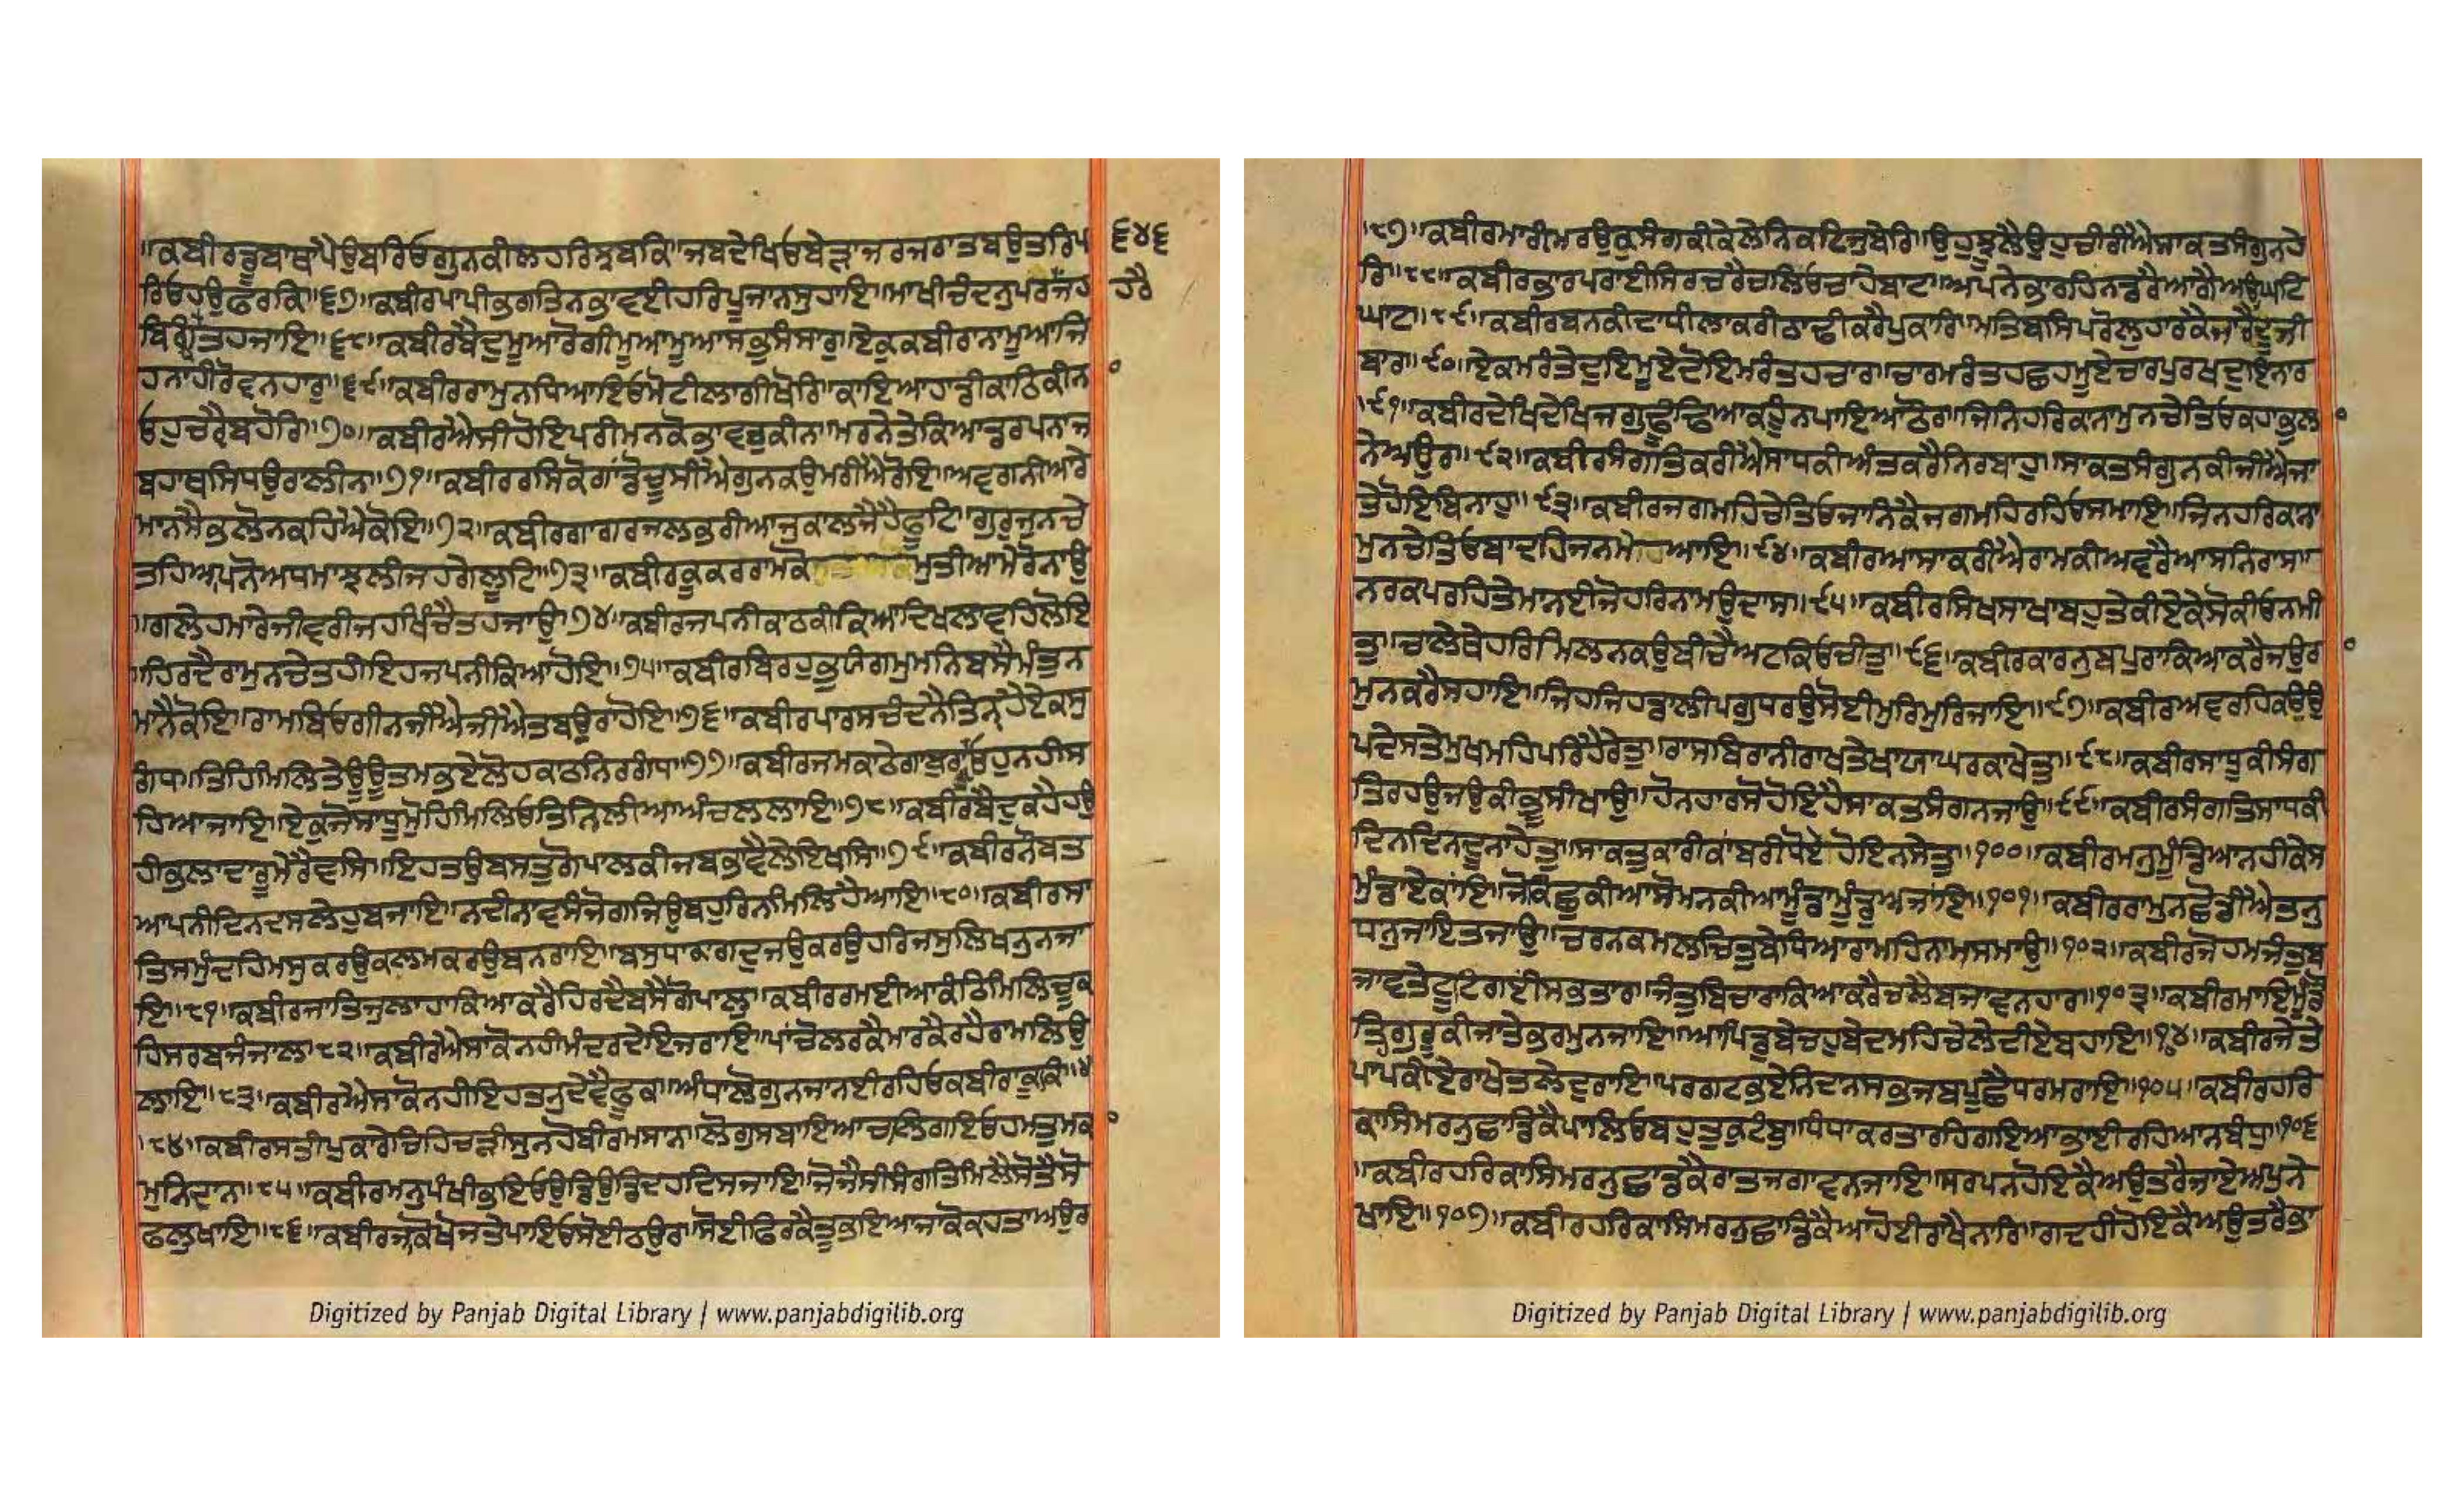 ॥ਕਬੀਰਡੂਬਾਥਾਪੈਉਬਰਿਓਗੁਨਕੀਲਹਰਿਝਬਕਿ॥ਜਬਦੇਖਿਓਬੇੜਾਜਰਜਰਾਤਬਉਤਰਿਪ ੬੪੬
ਰਿਓਹਉਫਰਕਿ॥੬੭॥ਕਬੀਰਪਾਪੀਭਗਤਿਨਭਾਵਈਹਰਿਪੂਜਾਨਸੁਹਾਇ॥ਮਾਖੀਚੰਦਨੁਪਰਹਰੈ ਹਰੈ
ਬਿਗੰਧਤਹਜਾਇ॥੬੮॥ਕਬੀਰਬੈਦੁਮੂਆਰੋਗੀਮੂਆਮੂਆਸਭੁਸੰਸਾਰੁ॥ਏਕੁਕਬੀਰਾਨਾਮੂਆਜਿ
ਹਨਾਹੀਰੋਵਨਹਾਰੁ॥੬੯॥ਕਬੀਰਰਾਮੁਨਧਿਆਇਓਮੋਟੀਲਾਗੀਖੋਰਿ॥ਕਾਇਆਹਾਡੀਕਾਠਕੀਨ
ਓਹੁਚਰੈਬਹੋਰਿ॥੭੦॥ਕਬੀਰਐਸੀਹੋਇਪਰੀਮਨਕੋਭਾਵਤੁਕੀਨ॥ਮਰਨੇਤੇਕਿਆਡਰਪਨਾਜ
ਬਹਾਥਸਿਧਉਰਾਲੀਨ॥੭੧॥ਕਬੀਰਰਸਕੋਗਾਂਡੋਚੂਸੀਐਗੁਨਕਉਮਰੀਐਰੋਇ॥ਅਵਗੁਨੀਆਰੇ
ਮਾਨਸੈਭਲੋਨਕਹਿਐਕੋਇ॥੭੨॥ਕਬੀਰਗਾਗਰਜਲਭਰੀਆਜੁਕਾਲਜੈਹੈਫੂਟਿ॥ਗੁਰੁਜੁਨਚੇ
ਤਹਿਆਪਨੋਅਧਮਾਝਲੀਜਹਗੇਲੂਟਿ॥੭੩॥ਕਬੀਰਕੂਕਰਰਾਮਕੋ ਮੁਤੀਆਮੇਰੋਨਾਉ
॥ਗਲੇਹਮਾਰੇਜੇਵਰੀਜਹਖਿੰਚੈਤਹਜਾਉ॥੭੪॥ਕਬੀਰਜਪਨੀਕਾਠਕੀਕਿਆਦਿਖਲਾਵਹਿਲੋਇ
॥ਹਿਰਦੈਰਾਮੁਨਚੇਤਹੀਇਹਜਪਨੀਕਿਆਹੋਇ॥੭੫॥ਕਬੀਰਬਿਰਹੁਭੁਯੰਗਮੁਮਨਿਬਸੈਮੰਤੁਨ
ਮਾਨੈਕੋਇ॥ਰਾਮਬਿਓਗੀਨਜੀਐਜੀਐਤਬਉਰਾਹੋਇ॥੭੬॥ਕਬੀਰਪਾਰਸਚੰਦਨੈਤਿਨ੍ਹਹੈਏਕਸੁ
ਗੰਧ॥ਤਿਹਿਮਿਲਿਤੇਊਉਤਮਭਏਲੋਹਕਾਠਨਿਰਗੰਧ॥੭੭॥ਕਬੀਰਜਮਕਾਠੇਗਾਬੁਰਾਓਹੁਨਹੀਸ
ਹਿਆਜਾਇ॥ਏਕੁਜੋਸਾਧੁਮੋੁਹਿਮਿਲਿਓਤਿਨਿਲੀਆਅੰਚਲਲਾਇ॥੭੮॥ਕਬੀਰਬੈਦੁਕਹੈਹਉ
ਹੀਭਲਾਦਾਰੂਮੇਰੈਵਸਿ॥ਇਹਤਉਬਸਤੁਗੋਪਾਲਕੀਜਬਭਾਵੈਲੇਇਖਸਿ॥੭੯॥ਕਬੀਰਨੋਬਤ
ਆਪਨੀਦਿਨਦਸਲੇਹੁਬਜਾਇ॥ਨਦੀਨਾਵਸੰਜੋਗਜਿਉਬਹੁਰਿਨਮਿਲਿਹੈਆਇ॥੮੦॥ਕਬੀਰਸਾ
ਤਸਮੁੰਦਹਿਮਸੁਕਰਉਕਲਮਕਰਉਬਨਰਾਇ॥ਬਸੁਧਾਕਾਗਦੁਜਉਕਰਉਹਰਿਜਸੁਲਿਖਨੁਨਜਾ
ਇ॥੮੧॥ਕਬੀਰਜਾਤਿਜੁਲਾਹਾਕਿਆਕਰੈਹਿਰਦੈਬਸੈਗੋਪਾਲੁ॥ਕਬੀਰਰਮਈਆਕੰਠਿਮਿਲਿਚੂਕ
ਹਿਸਰਬਜੰਜਾਲ॥੮੨॥ਕਬੀਰਐਸਾਕੋਨਹੀਮੰਦਰਦੇਇਜਰਾਇ॥ਪਾਂਚੋਲਰਕੈਮਾਰਕੈਰਹੈਰਾਮਲਿਉ
ਲਾਇ॥੮੩॥ਕਬੀਰਐਸਾਕੋਨਹੀਇਹਤਨੁਦੇਵੈਫੂਕਿ॥ਅੰਧਾਲੋਗੁਨਜਾਨਈਰਹਿਓਕਬੀਰਾਕੂਕਿ
॥੮੪॥ਕਬੀਰਸਤੀਪੁਕਾਰੈਚਿਹਿਚੜੀਸੁਨਹੋਬੀਰਮਸਾਨ॥ਲੋਗੁਸਬਾਇਆਚਲਿਗਇਓਹਮਤੁਮਕਾ
ਮੁਨਿਦਾਨ॥੮੫॥ਕਬੀਰਮਨੁਪੰਖੀਭਇਓਉਡਿਉਡਿਦਹਦਿਸਜਾਇ॥ਜੋਜੈਸੀਸੰਗਤਿਮਿਲੈਸੋਤੈਸੋ
ਫਲੁਖਾਇ॥੮੬॥ਕਬੀਰਜਾਕੋਖੋਜਤੇਪਾਇਓਸੋਈਠਉਰੁ॥ਸੋਈਫਿਰਕੈਤੂਭਇਆਜਾਕੋਕਹਤਾਅਉਰ
॥੮੭॥ਕਬੀਰਮਾਰੀਮਰਉਕੁਸੰਗਕੀਕੇਲੇਨਿਕਟਿਜੁਬੇਰਿ॥ਉਹੁਝੂਲੈਉਹੁਚੀਰੀਐਸਾਕਤਸੰਗੁਨਹੇ
ਰਿ॥੮੮॥ਕਬੀਰਭਾਰਪਰਾਈਸਿਰਚਰੈਚਲਿਓਚਾਹੈਬਾਟ॥ਅਪਨੇਭਾਰਹਿਨਡਰੈਆਗੈਅਉਘਟਿ
ਘਾਟ॥੮੯॥ਕਬੀਰਬਨਕੀਦਾਧੀਲਾਕਰੀਠਾਢੀਕਰੈਪੁਕਾਰਿ॥ਮਤਿਬਸਿਪਰੋਲੁਹਾਰਕੈਜਾਰੈਦੂਜੀ
ਬਾਰ॥੯੦॥ਏਕਮਰੰਤੇਦੁਇਮੂਏਦੋਇਮਰੰਤਹਚਾਰ॥ਚਾਰਮਰੰਤਹਛਹਮੂਏਚਾਰਪੁਰਖਦੁਇਨਾਰ
॥੯੧॥ਕਬੀਰਦੇਖਿਦੇਖਿਜਗੁਢੂੰਢਿਆਕਹੂੰਨਪਾਇਆਠੋਰ॥ਜਿਨਿਹਰਿਕਨਾਮੁਨਚੇਤਿਓਕਹਾਭੁਲਾ
ਨੇਅਉਰ॥੯੨॥ਕਬੀਰਸੰਗਤਿਕਰੀਐਸਾਧਕੀਅੰਤਕਰੈਨਿਰਬਾਹੁ॥ਸਾਕਤਸੰਗੁਨਕੀਜੀਐਜਾ
ਤੇਹੋਇਬਿਨਾਹੁ॥੯੩॥ਕਬੀਰਜਗਮਹਿਚੇਤਿਓਜਾਨਿਕੈਜਗਮਹਿਰਹਿਓਸਮਾਇ॥ਜਿਨਹਰਿਕਾਨਾ
ਮੁਨਚੇਤਿਓਬਾਦਹਿਜਨਮੇ ਆਇ॥੯੪॥ਕਬੀਰਆਸਾਕਰੀਐਰਾਮਕੀਅਵਰੈਆਸਨਿਰਾਸ॥
ਨਰਕਪਰਹਿਤੇਮਾਨਈਜੋਹਰਿਨਾਮਉਦਾਸ॥੯੫॥ਕਬੀਰਸਿਖਸਾਖਾਬਹੁਤੇਕੀਏਕੇਸੋਕੀਓਨਮੀ
ਤੁ॥ਚਾਲੇਥੇਹਰਿਮਿਲਨਕਉਬੀਚੈਅਟਕਿਓਚੀਤੁ॥੯੬॥ਕਬੀਰਕਾਰਨੁਬਪੁਰਾਕਿਆਕਰੈਜਉਰਾ
ਮੁਨਕਰੈਸਹਾਇ॥ਜਿਹਜਿਹਡਾਲੀਪਗੁਧਰਉਸੋਈਮੁਰਿਮੁਰਿਜਾਇ॥੯੭॥ਕਬੀਰਅਵਰਹਿਕਉਉ
ਪਦੇਸਤੇਮੁਖਮਹਿਪਰਿਹੈਰੇਤੁ॥ਰਾਸਬਿਰਾਨੀਰਾਖਤੇਖਾਯਾਘਰਕਾਖੇਤੁ॥੯੮॥ਕਬੀਰਸਾਧੂਕੀਸੰਗ
ਤਿਰਹਉਜਉਕੀਭੂਸੀਖਾਉ॥ਹੋਨਹਾਰਸੋਹੋਇਹੈਸਾਕਤਸੰਗਨਜਾਉ॥੯੯॥ਕਬੀਰਸੰਗਤਿਸਾਧਕੀ
ਦਿਨਦਿਨਦੂਨਾਹੇਤੁ॥ਸਾਕਤਕਾਰੀਕਾਂਬਰੀਧੋਏਹੋਇਨਸੇਤੁ॥੧੦੦॥ਕਬੀਰਮਨੁਮੂੰਡਿਆਨਹੀਕੇਸ
ਮੁੰਡਾਏਕਾਂਇ॥ਜੋਕਿਛੁਕੀਆਸੋਮਨਕੀਆਮੂੰਡਾਮੂੰਡੁਅਜਾਂਇ॥੧੦੧॥ਕਬੀਰਰਾਮੁਨਛੋਡੀਐਤਨੁ
ਧਨੁਜਾਇਤਜਾਉ॥ਚਰਨਕਮਲਚਿਤੁਬੇਧਿਆਰਾਮਹਿਨਾਮਸਮਾਉ॥੧੦੨॥ਕਬੀਰਜੋਹਮਜੰਤੁਬ
ਜਾਵਤੇਟੂਟਿਗਈਂਸਭਤਾਰ॥ਜੰਤੁਬਿਚਾਰਾਕਿਆਕਰੈਚਲੈਬਜਾਵਨਹਾਰ॥੧੦੩॥ਕਬੀਰਮਾਇਮੂੰਡੋ
ਤਿਗੁਰੂਕੀਜਾਤੇਭਰਮੁਨਜਾਇ॥ਆਪਿਡੁਬੇਚਹੁਬੇਦਮਹਿਚੇਲੇਦੀਏਬਹਾਇ॥੧੦੪॥ਕਬੀਰਜੇਤੇ
ਪਾਪਕੀਏਰਾਖੇਤਲੇਦੁਰਾਇ॥ਪਰਗਟਭਏਨਿਦਾਨਸਭਜਬਪੂਛੈਧਰਮਰਾਇ॥੧੦੫॥ਕਬੀਰਹਰਿ
ਕਾਸਿਮਰਨੁਛਾਡਿਕੈਪਾਲਿਓਬਹੁਤੁਕੁਟੰਬੁ॥ਧੰਧਾਕਰਤਾਰਹਿਗਇਆਭਾਈਰਹਿਆਨਬੰਧੁ॥੧੦੬
॥ਕਬੀਰਹਰਿਕਾਸਿਮਰਨੁਛਾਡਿਕੈਰਾਤਜਗਾਵਨਜਾਇ॥ਸਰਪਨਹੋਇਕੈਅਉਤਰੈਜਾਏਅਪੁਨੇ
ਖਾਇ॥੧੦੭॥ਕਬੀਰਹਰਿਕਾਸਿਮਰਨੁਛਾਡਿਕੈਅਹੋਈਰਾਖੈਨਾਰਿ॥ਗਦਹੀਹੋਇਕੈਅਉਤਰੈਭਾ
Digitized by Panjab Digital Library | www.panjabdigilib.org
Digitized by Panjab Digital Library | www.panjabdigilib.org